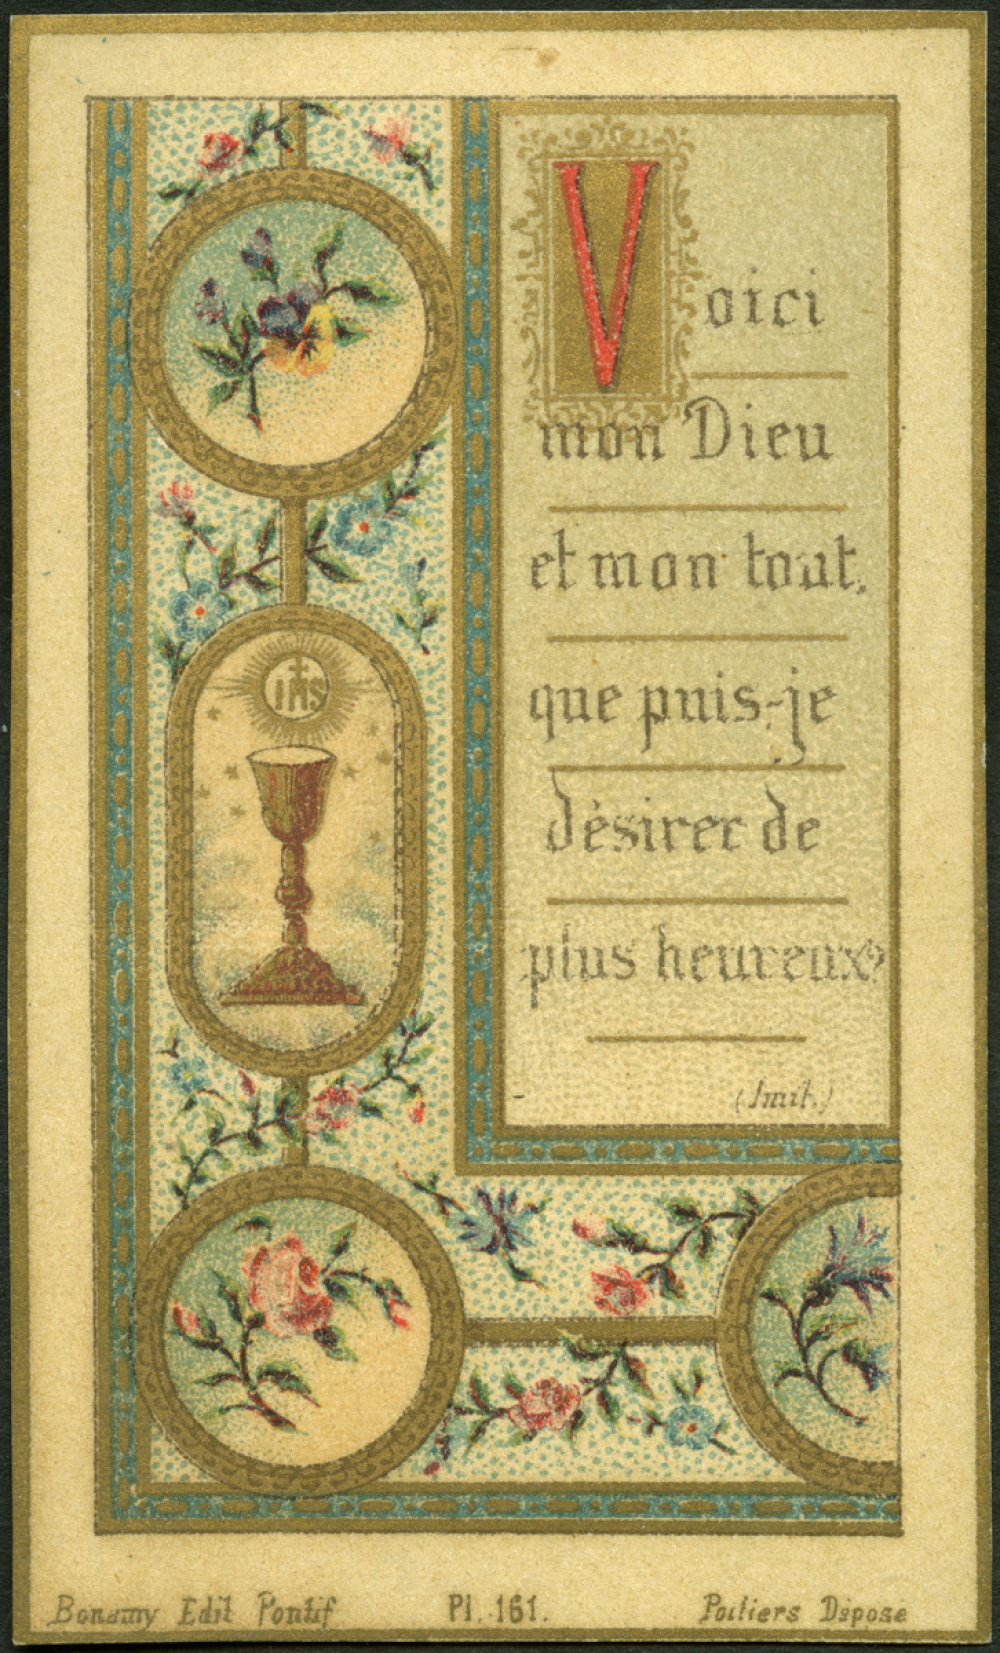 Voici
mon Dieu
et mon tout,
que puis-je
désirer de
plus heureux?
(Imit.)
IHS
Bonamy Edit Pontif Pl. 161. Poitiers Déposé